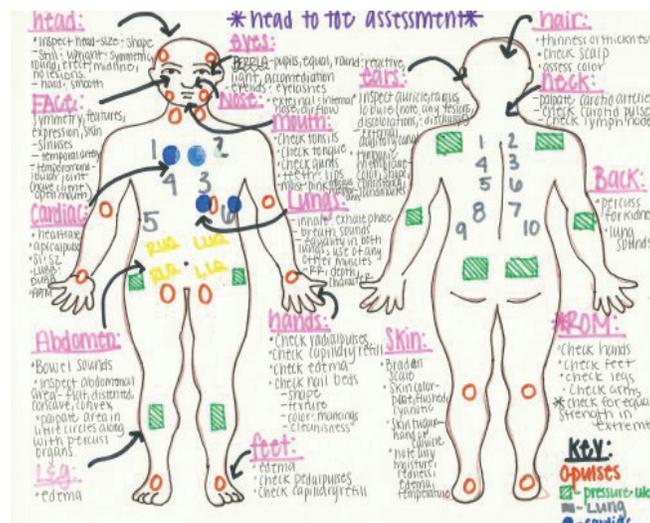 *head to toe assessment*
head:
• inspect head-size + shape
- still + upright + symmetric
round, erect, midline,
no lesions
- hard, smooth
FACE:
symmetry, features,
expression, skin
- sinuses
- temporal artery
joint
open mouth
Cardiac:
• heart rate
• apical pulse
• S1, S2
Abdomen:
• Bowel sounds
• inspect abdominal
area - flat, distented,
concave, convex
• palpate area in
little circles along
with percuss
organs
Leg:
• edema
Eyes:
PERRLA - pupils, equal, round, reactive,
light, accomodation
eyelids - eyelashes
Nose:
• external + internal
nose airflow
mouth:
• check tonsils
• check tongue
• check gums
teeth + lips
Lungs:
• inhale + exhale phase
- breath sounds
- equality in both
lungs, use of any
other muscles
- RR, depth,
character
hands:
• check radial pulses
• check capillary refill
• check edema
• check nail beds
- shape
- texture
- color, markings
- cleanliness
feet:
• edema
• check pedal pulses
• check capillary refill
1 2
4 3
5 6
RUQ LUQ
RLQ LLQ
ears:
inspect auricle,
- external
auditory canal
color, shape,
hair:
• thinness or thickness
• check scalp
• assess color
neck:
- palpate carotid arteries
- check carotid pulse
- check lymph nodes
Back:
• percuss
for kidney
• lung
sounds
1 2
4 3
5 6
8 7
9 10
Skin:
Braden
scale
• skin color-
pale, flushed,
cyanotic
• skin turgor-
hand or
• note any
moisture,
redness,
edema,
temperature
*ROM:
• check hands
• check feet
• check legs
• check arms
*check for equal
strength in
Key:
O-pulses
- pressure
- Lung
- cardiac